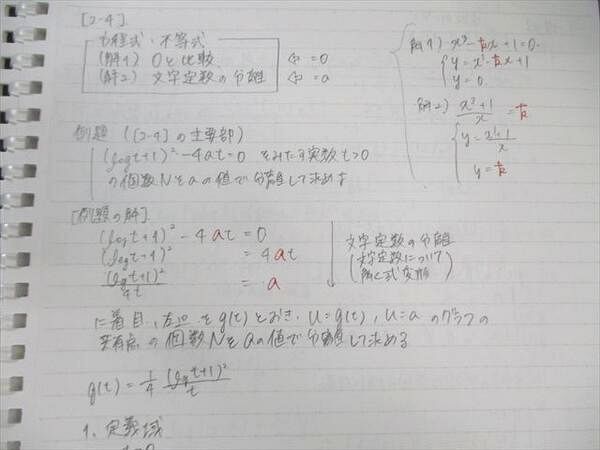 [2-4]
方程式・不等式
(解1) 0と比較 ⇔ =0
(解2) 文字定数の分離 ⇔ =a
解1) x³-kx+1=0.
y=x³-kx+1
y=0
解2) x³+1/x = k
y=x³+1/x
y=k
例題 ([2-4]の主要部)
(log t+1)²-4at=0 をみたす実数t>0
の個数Nをaの値で分離して求めよ
[例題の解]
(log t+1)² - 4at = 0
(log t+1)² = 4at
(log t+1)²/4t = a
文字定数の分離
(文字定数について
解く式変形)
に着目し、左辺をg(t)とおき、u=g(t), u=aのグラフの
共有点の個数Nをaの値で分離して求める
g(t)=1/4 (log t+1)²/t
1. 定義域
t>0